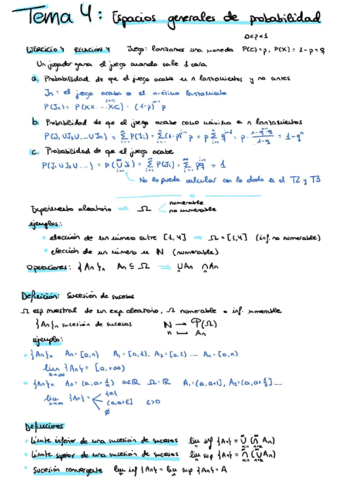 Tema 4: Espacios generales de probabilidad
0<p<1
EJERCICIO 4 RELACIÓN 4 Juego: lanzamos una moneda P(C)=p, P(X)=1-p=q
Un jugador gana el juego cuando sale 1 cara
a. Probabilidad de que el juego acabe en n lanzamientos y no antes
Jn = el juego acaba en el n-ésimo lanzamiento
P(Jn) = P(XX...XC) = (1-p)ⁿ⁻¹ p
b. Probabilidad de que el juego acabe como máximo en n lanzamientos
c. Probabilidad de que el juego acabe
No lo puedo calcular con lo dado en el T2 y T3
Experimento aleatorio → Ω numerable
no numerable
ejemplos:
• elección de un número entre [1,4] → Ω=[1,4] (inf. no numerable)
• elección de un número en ℕ (numerable)
Operaciones: {An}n An ⊆ Ω → ∪An ∩An
Definición: Sucesión de sucesos
Ω esp muestral de un exp. aleatorio, Ω numerable o inf. numerable
{An}n sucesión de sucesos ℕ → P(Ω)
n An
ejemplo:
• {An}n An=[0,n) A1=[0,1), A2=[0,2) ... An=[0,n)
lim {An} = [0,+∞)
n→∞
Definiciones
• Límite inferior de una sucesión de sucesos lim inf {An} = ∪ (∩ An)
• Límite superior de una sucesión de sucesos lim sup {An} = ∩ (∪ An)
• Sucesión convergente lim inf {An} = lim sup {An} = A